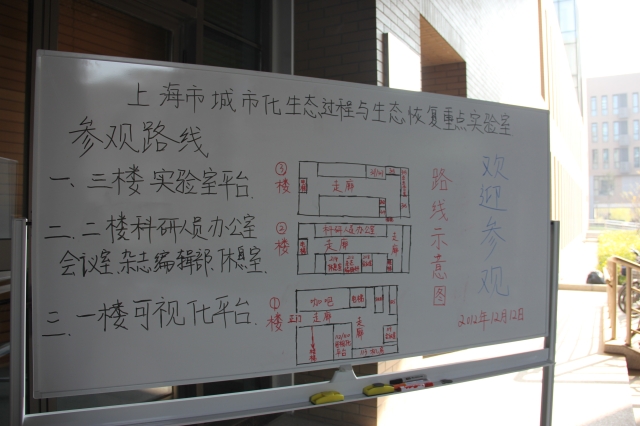 上海市城市化生态过程与生态恢复重点实验室
参观路线
一、三楼实验室平台.
二、二楼科研人员办公室
会议室、杂志编辑部、休息室.
三、一楼可视化平台.
③楼
走廊
②楼
科研人员办公室
走廊
走廊
①楼
正门
走廊
走廊
路线示意图
欢迎参观
2012年12月12日